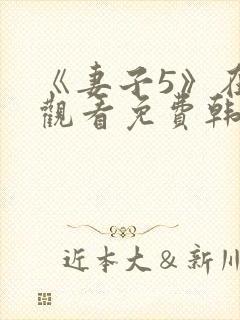 《妻子5》在
觀看免費韩
近本大＆新川